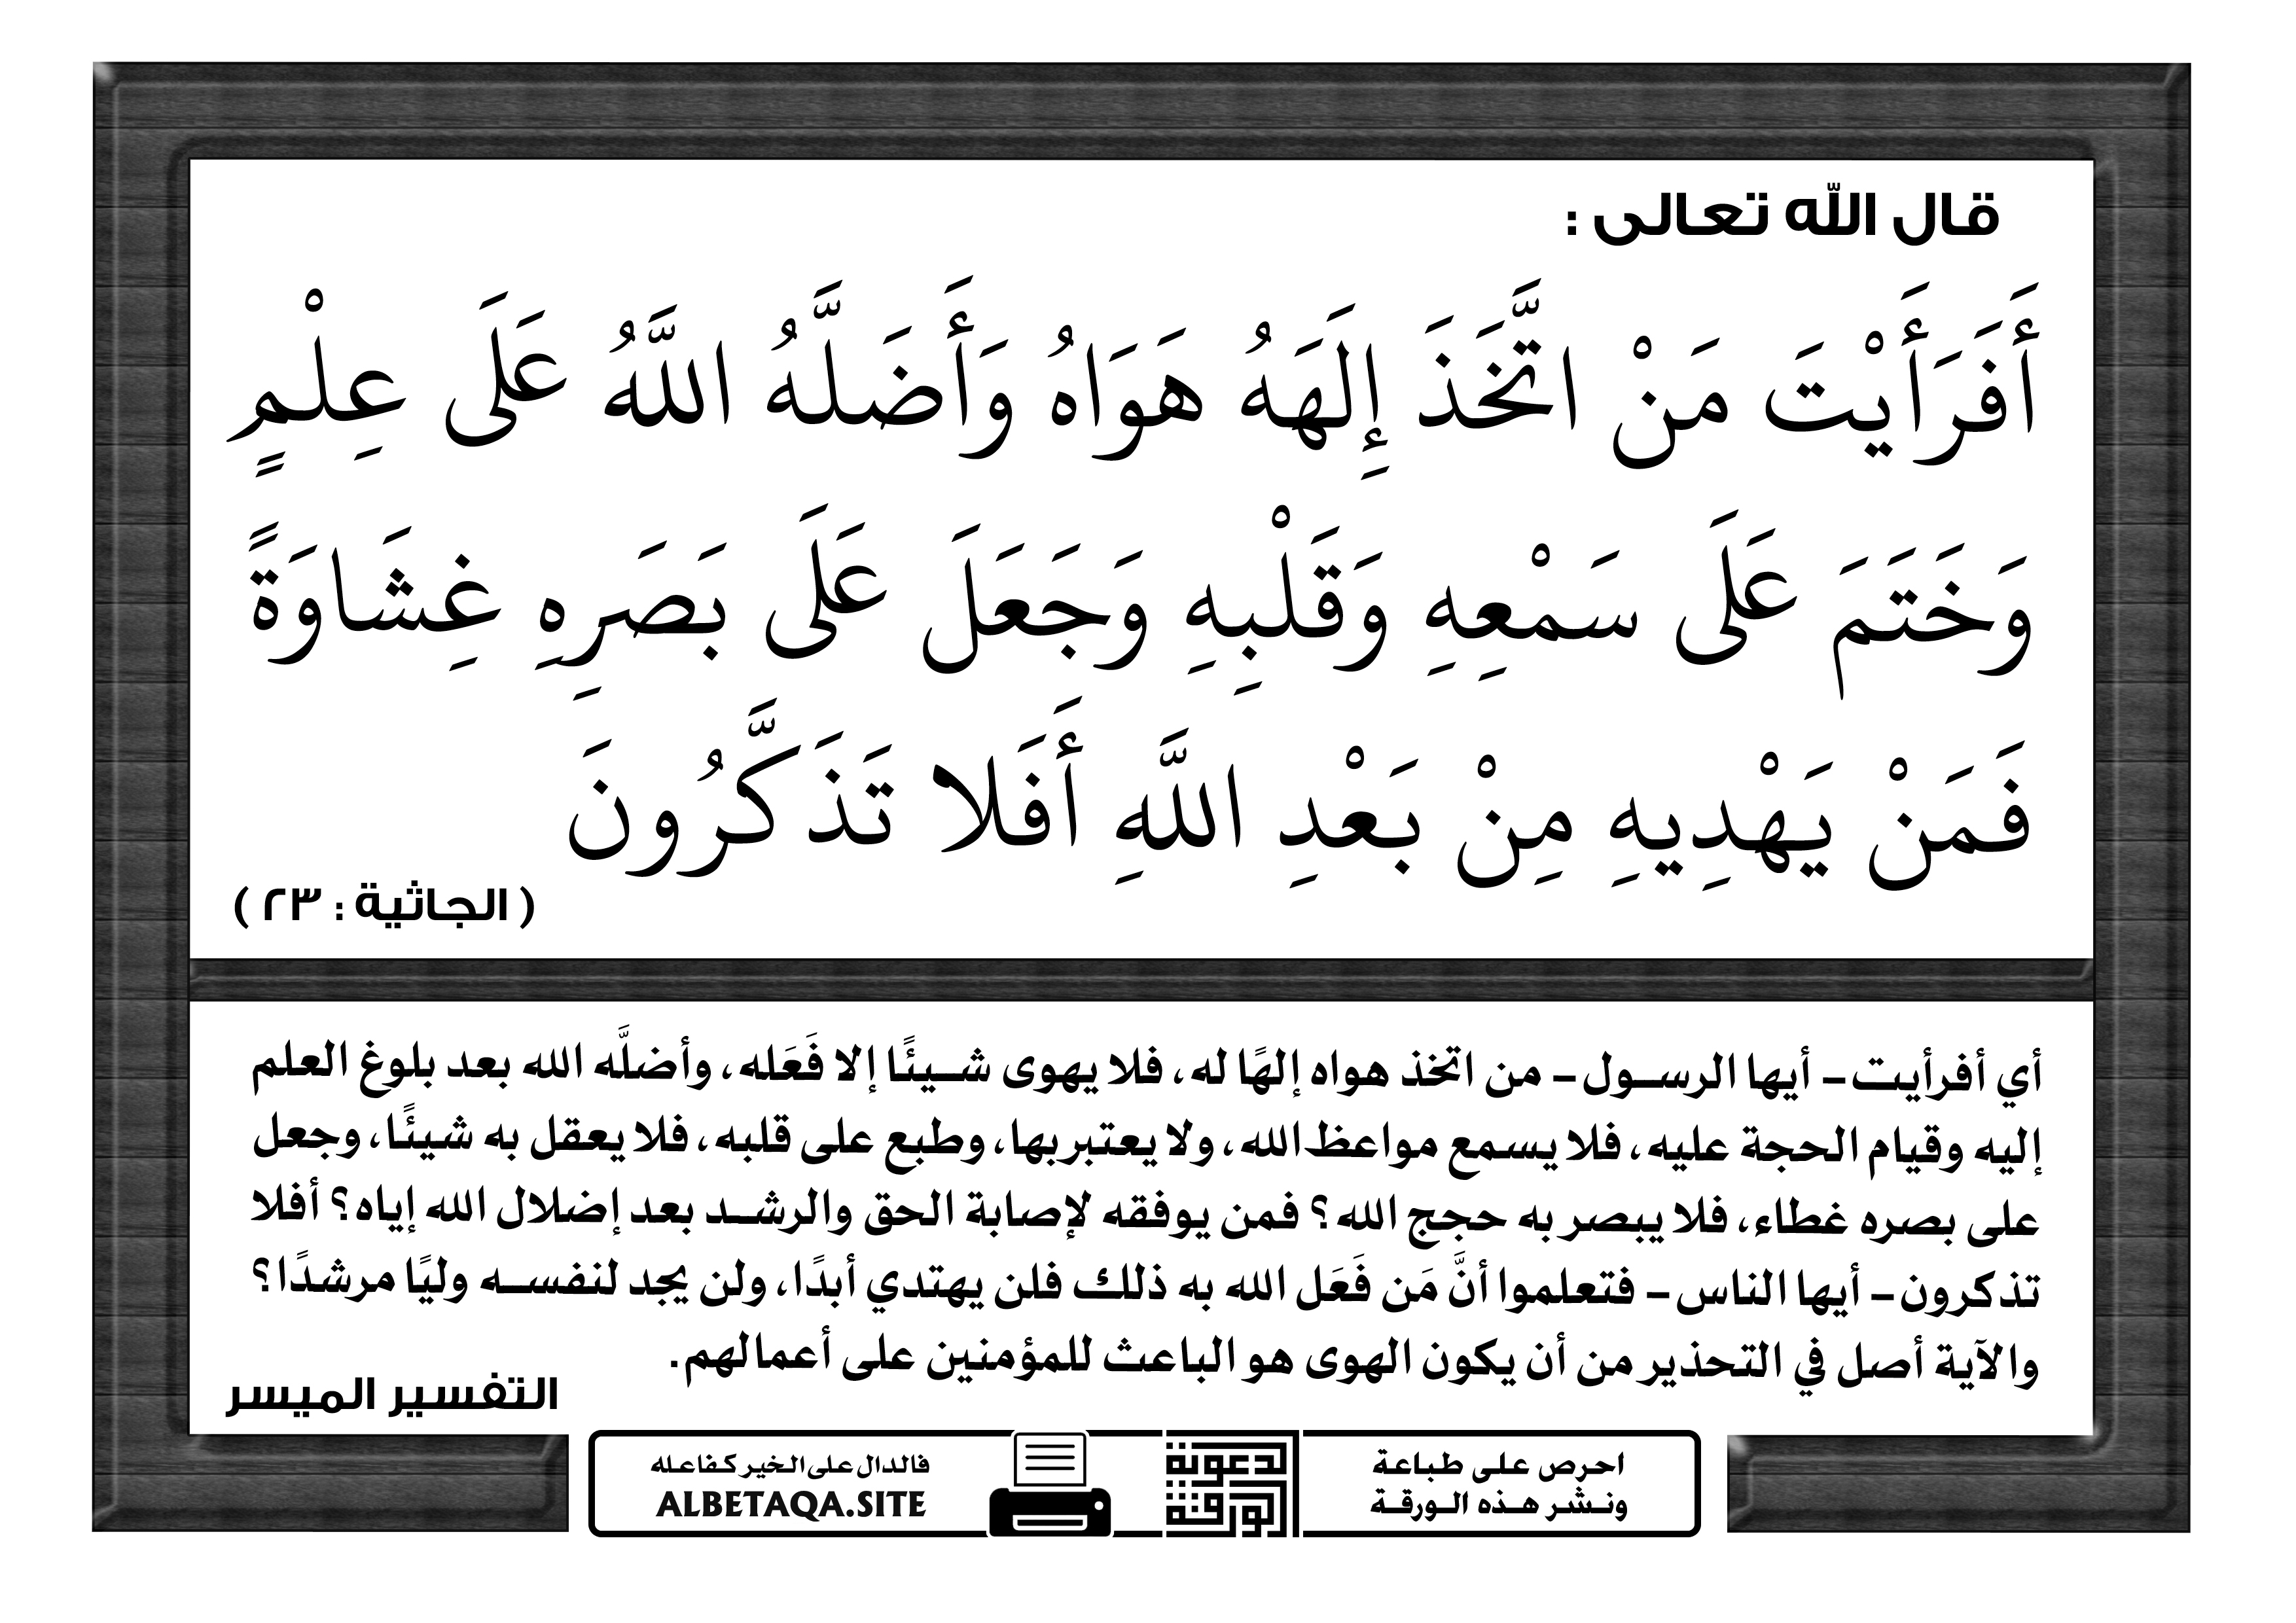 قال الله تعالى :
أَفَرَأَيْتَ مَنْ اتَّخَذَ إِلَهَهُ هَوَاهُ وَأَضَلَّهُ اللَّهُ عَلَى عِلْمٍ
وَخَتَمَ عَلَى سَمْعِهِ وَقَلْبِهِ وَجَعَلَ عَلَى بَصَرِهِ غِشَاوَةً
فَمَنْ يَهْدِيهِ مِنْ بَعْدِ اللَّهِ أَفَلا تَذَكَّرُونَ
( الجاثية : ٢٣ )
أي أفرأيت – أيها الرسول – من اتخذ هواه إلهًا له، فلا يهوى شيئًا إلا فَعَله، وأضلَّه الله بعد بلوغ العلم
إليه وقيام الحجة عليه، فلا يسمع مواعظ الله، ولا يعتبر بها، وطبع على قلبه، فلا يعقل به شيئًا، وجعل
على بصره غطاء، فلا يبصر به حجج الله؟ فمن يوفقه لإصابة الحق والرشد بعد إضلال الله إياه؟ أفلا
تذكرون – أيها الناس – فتعلموا أنَّ مَن فَعَل الله به ذلك فلن يهتدي أبدًا، ولن يجد لنفسه وليًا مرشدًا؟
والآية أصل في التحذير من أن يكون الهوى هو الباعث للمؤمنين على أعمالهم.
التفسير الميسر
احرص على طباعة
ونشر هذه الورقة
الدعوية
الورقة
فالدال على الخير كفاعله
ALBETAQA.SITE